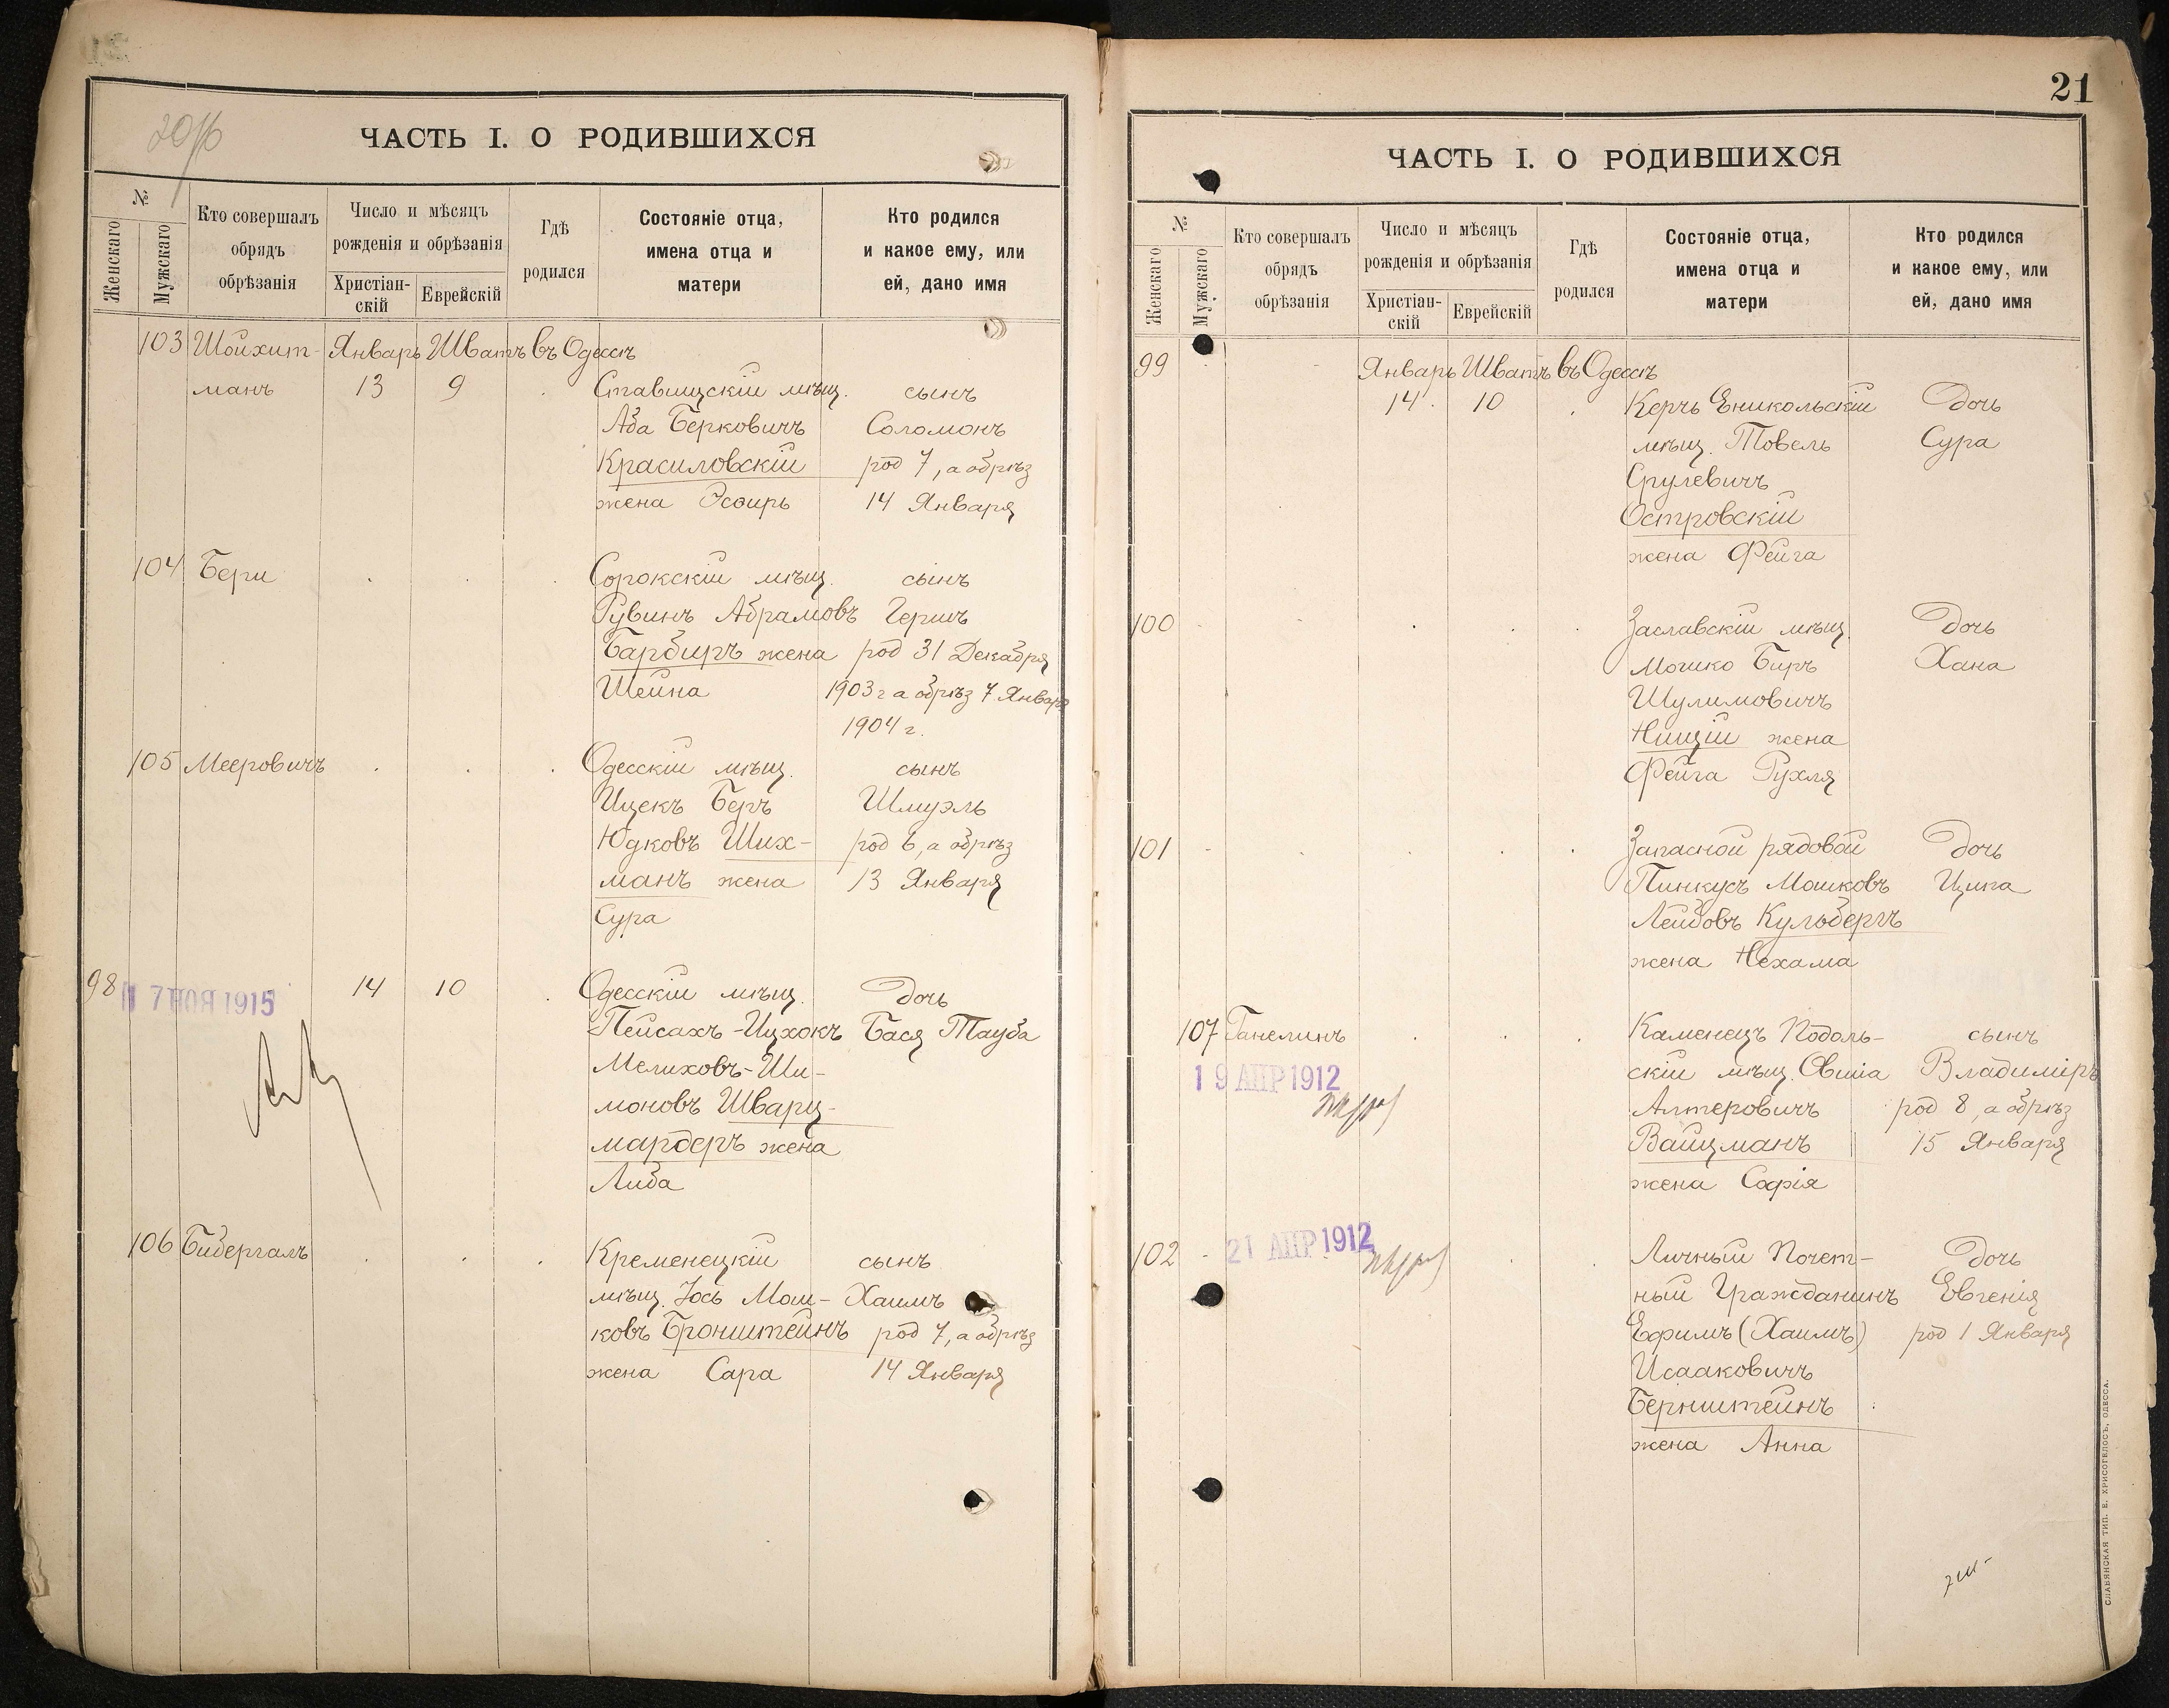 20
ЧАСТЬ I. О РОДИВШИХСЯ
№
Женскаго
Мужскаго
Кто совершалъ
обрядъ
обрѣзанія
Число и мѣсяцъ
рожденія и обрѣзанія
Христіан-
скій
Еврейскій
Гдѣ
родился
Состояніе отца,
имена отца и
матери
Кто родился
и какое ему, или
ей, дано имя
103 Шойхит- Январь Шватъ въ Одессѣ
манъ 13 9 Ставищскій мѣщ. сынъ
Аба Берковичъ Соломонъ
Красиловскій род 7, а обрѣз
жена Эсѳирь 14 Января
104 Бери Сорокскій мѣщ. сынъ
Рувинъ Абрамовъ Гершъ
Барбиръ жена род 31 Декабря
Шейна 1903 г а обрѣз 7 Января
1904 г.
105 Мееровичъ Одесскій мѣщ. сынъ
Ицекъ Беръ Шмуэль
Юдковъ Ших- род 6, а обрѣз
манъ жена 13 Января
Сура
98 17 НОЯ 1915 14 10 Одесскій мѣщ. Дочь
Пейсахъ-Ицхокъ Бася Тауба
Мелиховъ-Ши-
моновъ Шварц-
мардеръ жена
Либа
106 Бибергалъ Кременецкій сынъ
мѣщ. Іось Мош- Хаимъ
ковъ Бронштейнъ род 7, а обрѣз
жена Сара 14 Января
21
ЧАСТЬ I. О РОДИВШИХСЯ
№
Женскаго
Мужскаго
Кто совершалъ
обрядъ
обрѣзанія
Число и мѣсяцъ
рожденія и обрѣзанія
Христіан-
скій
Еврейскій
Гдѣ
родился
Состояніе отца,
имена отца и
матери
Кто родился
и какое ему, или
ей, дано имя
99 Январь Шватъ въ Одессѣ
14 10 Керчь Еникольскій Дочь
мѣщ. Товель Сура
Срулевичъ
Островскій
жена Фейга
100 Заславскій мѣщ. Дочь
Мошко Биръ Хана
Шулимовичъ
Нищій жена
Фейга Рухля
101 Запасной рядовой Дочь
Пинкусъ Мошковъ Ципа
Лейбовъ Кульбергъ
жена Нехама
107 Ганелинъ Каменецъ Подоль- сынъ
19 АПР 1912 скій мѣщ. Овшіа Владиміръ
Алтеровичъ род 8, а обрѣз
Вайцманъ 15 Января
жена Софія
102 21 АПР 1912 Личный Почет- Дочь
ный Гражданинъ Евгенія
Ефимъ (Хаимъ) род 1 Января
Исааковичъ
Бернштейнъ
жена Анна
СЛАВЯНСКАЯ ТИП. Е. ХРИСОГЕЛОСЪ, ОДЕССА.